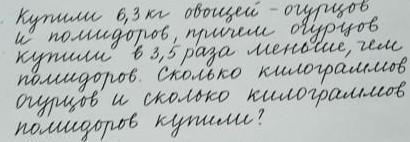 Купили 6,3 кг овощей - огурцов
и помидоров, причем огурцов
купили в 3,5 раза меньше, чем
помидоров. Сколько килограммов
огурцов и сколько килограммов
помидоров купили?